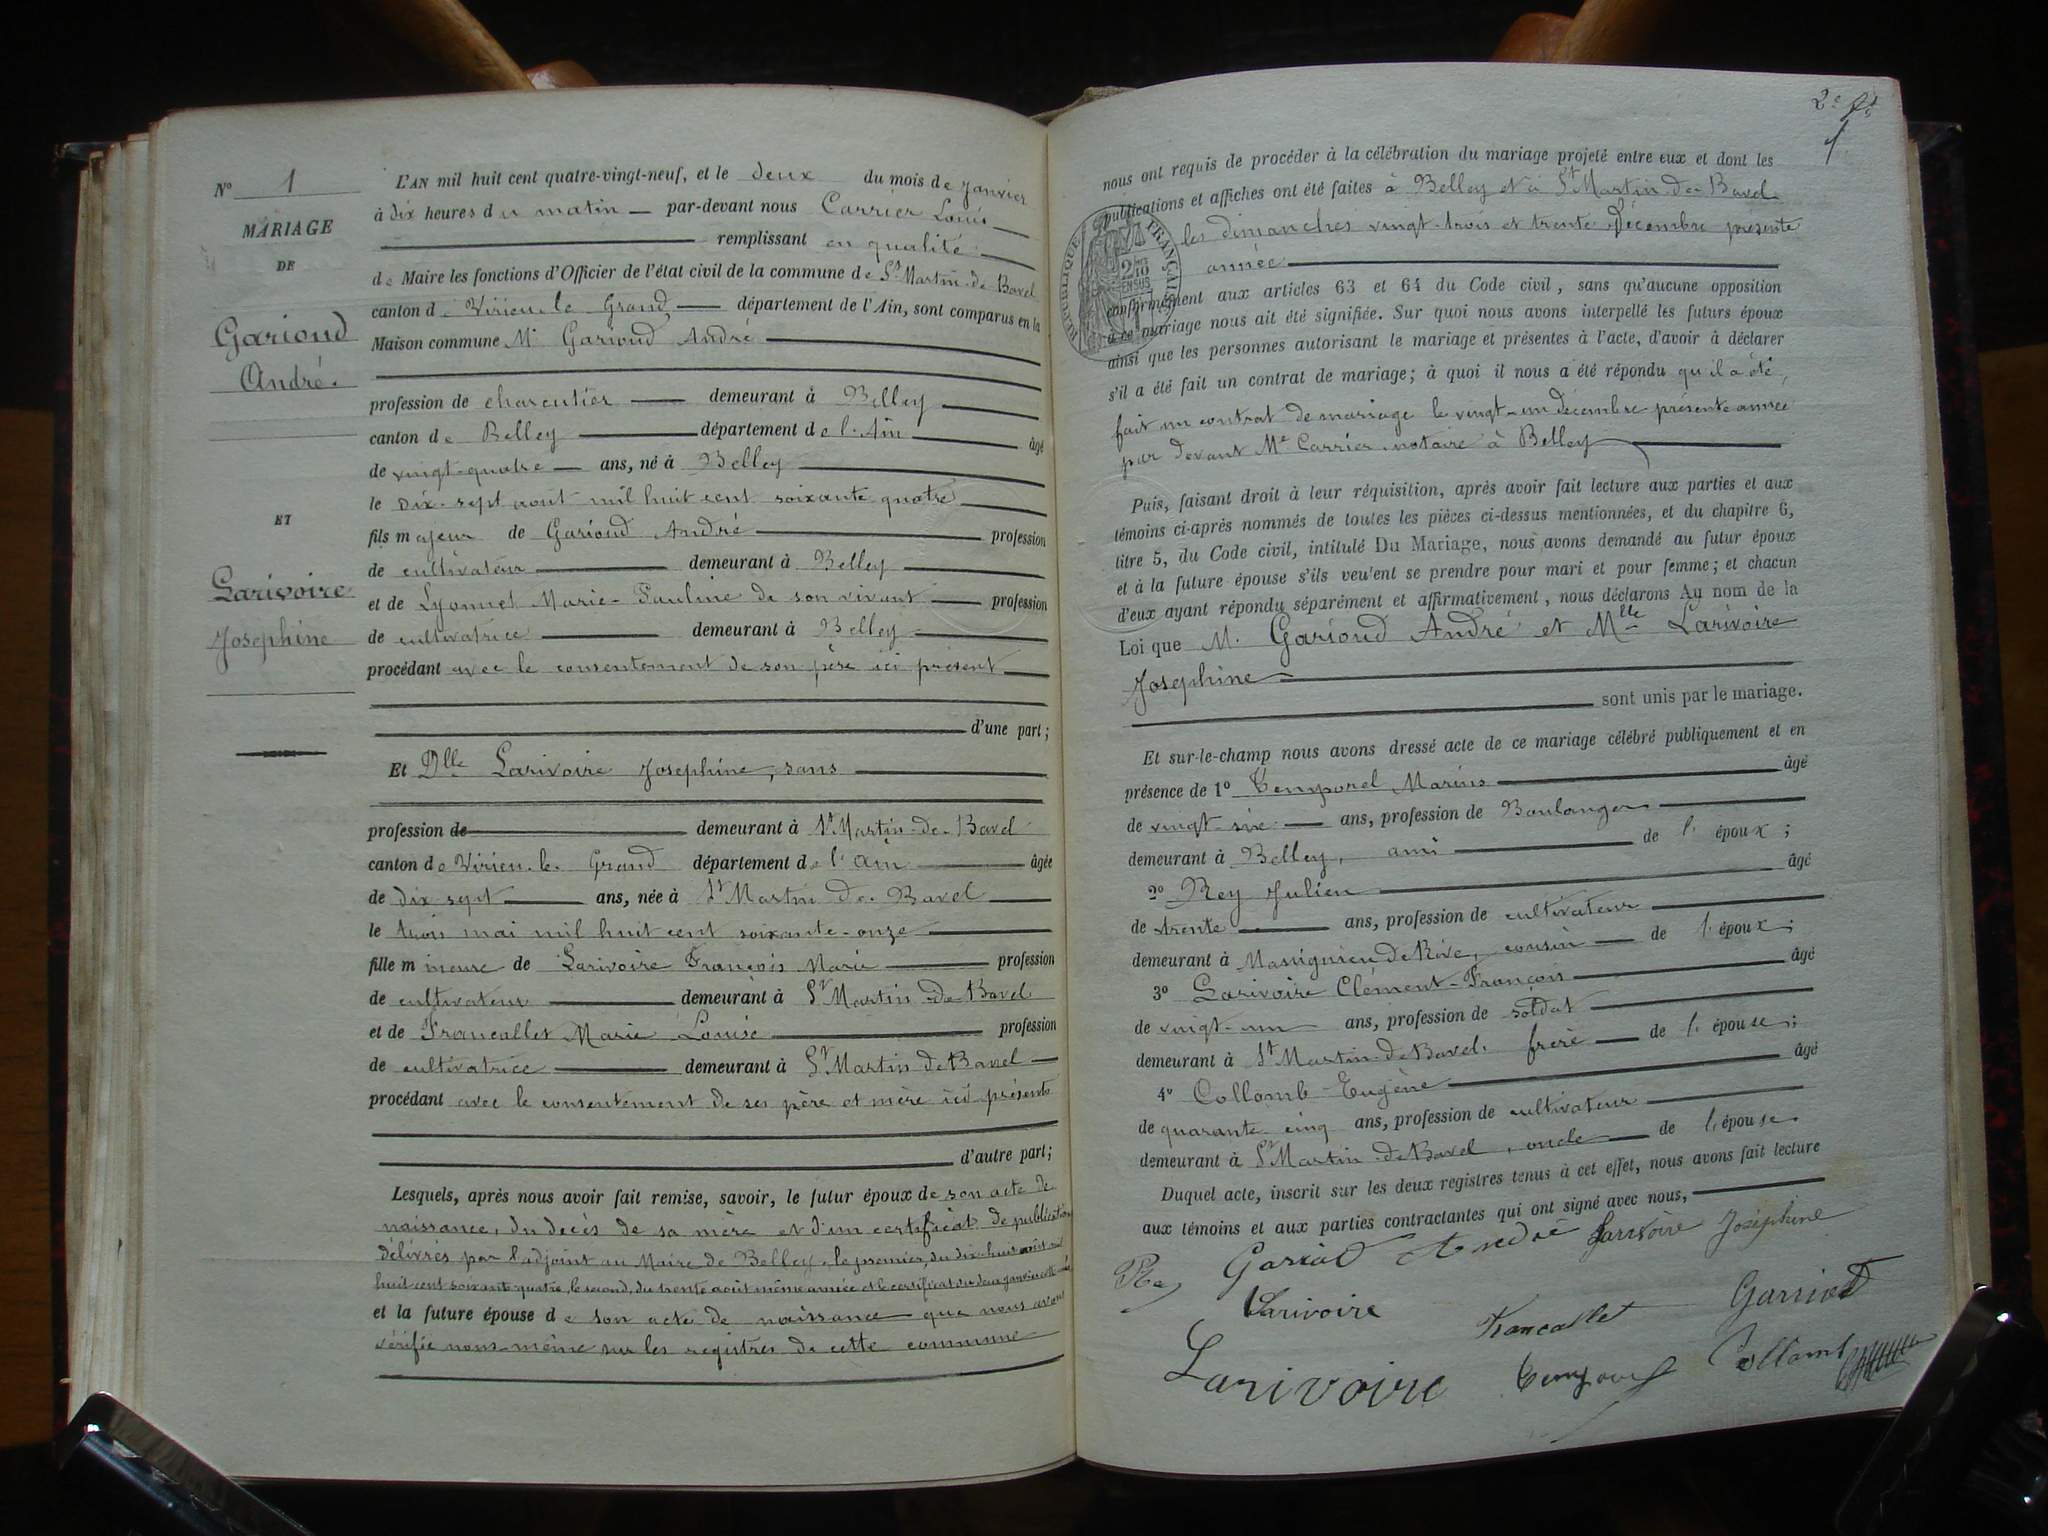 N° 1
MARIAGE
DE
Gariond
André.
ET
Larivoire
Josephine
L'AN mil huit cent quatre-vingt-neuf, et le deux du mois de janvier
à dix heures du matin par-devant nous Carrier Louis
remplissant en qualité
de Maire les fonctions d'Officier de l'état civil de la commune de St Martin-de-Bavel
canton de Virieu-le-Grand département de l'Ain, sont comparus en la
Maison commune Mr Gariond André
profession de charcutier demeurant à Belley
canton de Belley département de l'Ain âgé
de vingt-quatre ans, né à Belley
le dix-sept août mil huit cent soixante quatre
fils majeur de Gariond André profession
de cultivateur demeurant à Belley
et de Lyonnet Marie-Pauline de son vivant profession
de cultivatrice demeurant à Belley
procédant avec le consentement de son père ici présent
d'une part;
Et Dlle Larivoire Josephine, sans
profession de demeurant à St Martin-de-Bavel
canton de Virieu-le-Grand département de l'Ain âgée
de dix sept ans, née à St Martin-de-Bavel
le trois mai mil huit cent soixante-onze
fille mineure de Larivoire François Marie profession
de cultivateur demeurant à St Martin-de-Bavel
et de Francallet Marie Louise profession
de cultivatrice demeurant à St Martin de Bavel
procédant avec le consentement de ses père et mère ici présents
d'autre part;
Lesquels, après nous avoir fait remise, savoir, le futur époux de son acte de
naissance, du decès de sa mère et d'un certificat de publication
délivrés par l'adjoint au Maire de Belley, le premier, du dix-huit août mil
huit cent soixante quatre, le second, du trente août même année et le certificat du deux janvier
et la future épouse de son acte de naissance que nous avons
vérifié nous-même sur les registres de cette commune
2e
1
nous ont requis de procéder à la célébration du mariage projeté entre eux et dont les
publications et affiches ont été faites à Belley et à St Martin-de-Bavel
les dimanches vingt-trois et trente Décembre présente
année
RÉPUBLIQUE FRANÇAISE
2/10
EN SUS
conformément aux articles 63 et 64 du Code civil, sans qu'aucune opposition
à ce mariage nous ait été signifiée. Sur quoi nous avons interpellé les futurs époux
ainsi que les personnes autorisant le mariage et présentes à l'acte, d'avoir à déclarer
s'il a été fait un contrat de mariage; à quoi il nous a été répondu qu'il a été
fait un contrat de mariage le vingt-un décembre présente année
par devant Me Carrier notaire à Belley
Puis, faisant droit à leur réquisition, après avoir fait lecture aux parties et aux
témoins ci-après nommés de toutes les pièces ci-dessus mentionnées, et du chapitre 6,
titre 5, du Code civil, intitulé Du Mariage, nous avons demandé au futur époux
et à la future épouse s'ils veulent se prendre pour mari et pour femme; et chacun
d'eux ayant répondu séparément et affirmativement, nous déclarons Au nom de la
Loi que M. Gariond André et Mlle Larivoire
Josephine
sont unis par le mariage.
Et sur-le-champ nous avons dressé acte de ce mariage célébré publiquement et en
présence de 1° Temporel Marius âgé
de vingt-six ans, profession de Boulanger
demeurant à Belley, ami de l'époux;
2° Rey Julien âgé
de trente ans, profession de cultivateur
demeurant à Massignieu de Rive, cousin de l'époux;
3° Larivoire Clément-François âgé
de vingt-un ans, profession de soldat
demeurant à St Martin-de-Bavel, frère de l'épouse;
4° Collomb Eugène âgé
de quarante-cinq ans, profession de cultivateur
demeurant à St Martin-de-Bavel, oncle de l'épouse
Duquel acte, inscrit sur les deux registres tenus à cet effet, nous avons fait lecture
aux témoins et aux parties contractantes qui ont signé avec nous,
Rey Gariod André Larivoire Joséphine
Larivoire Francallet Garriod
Larivoire Temporel Collomb